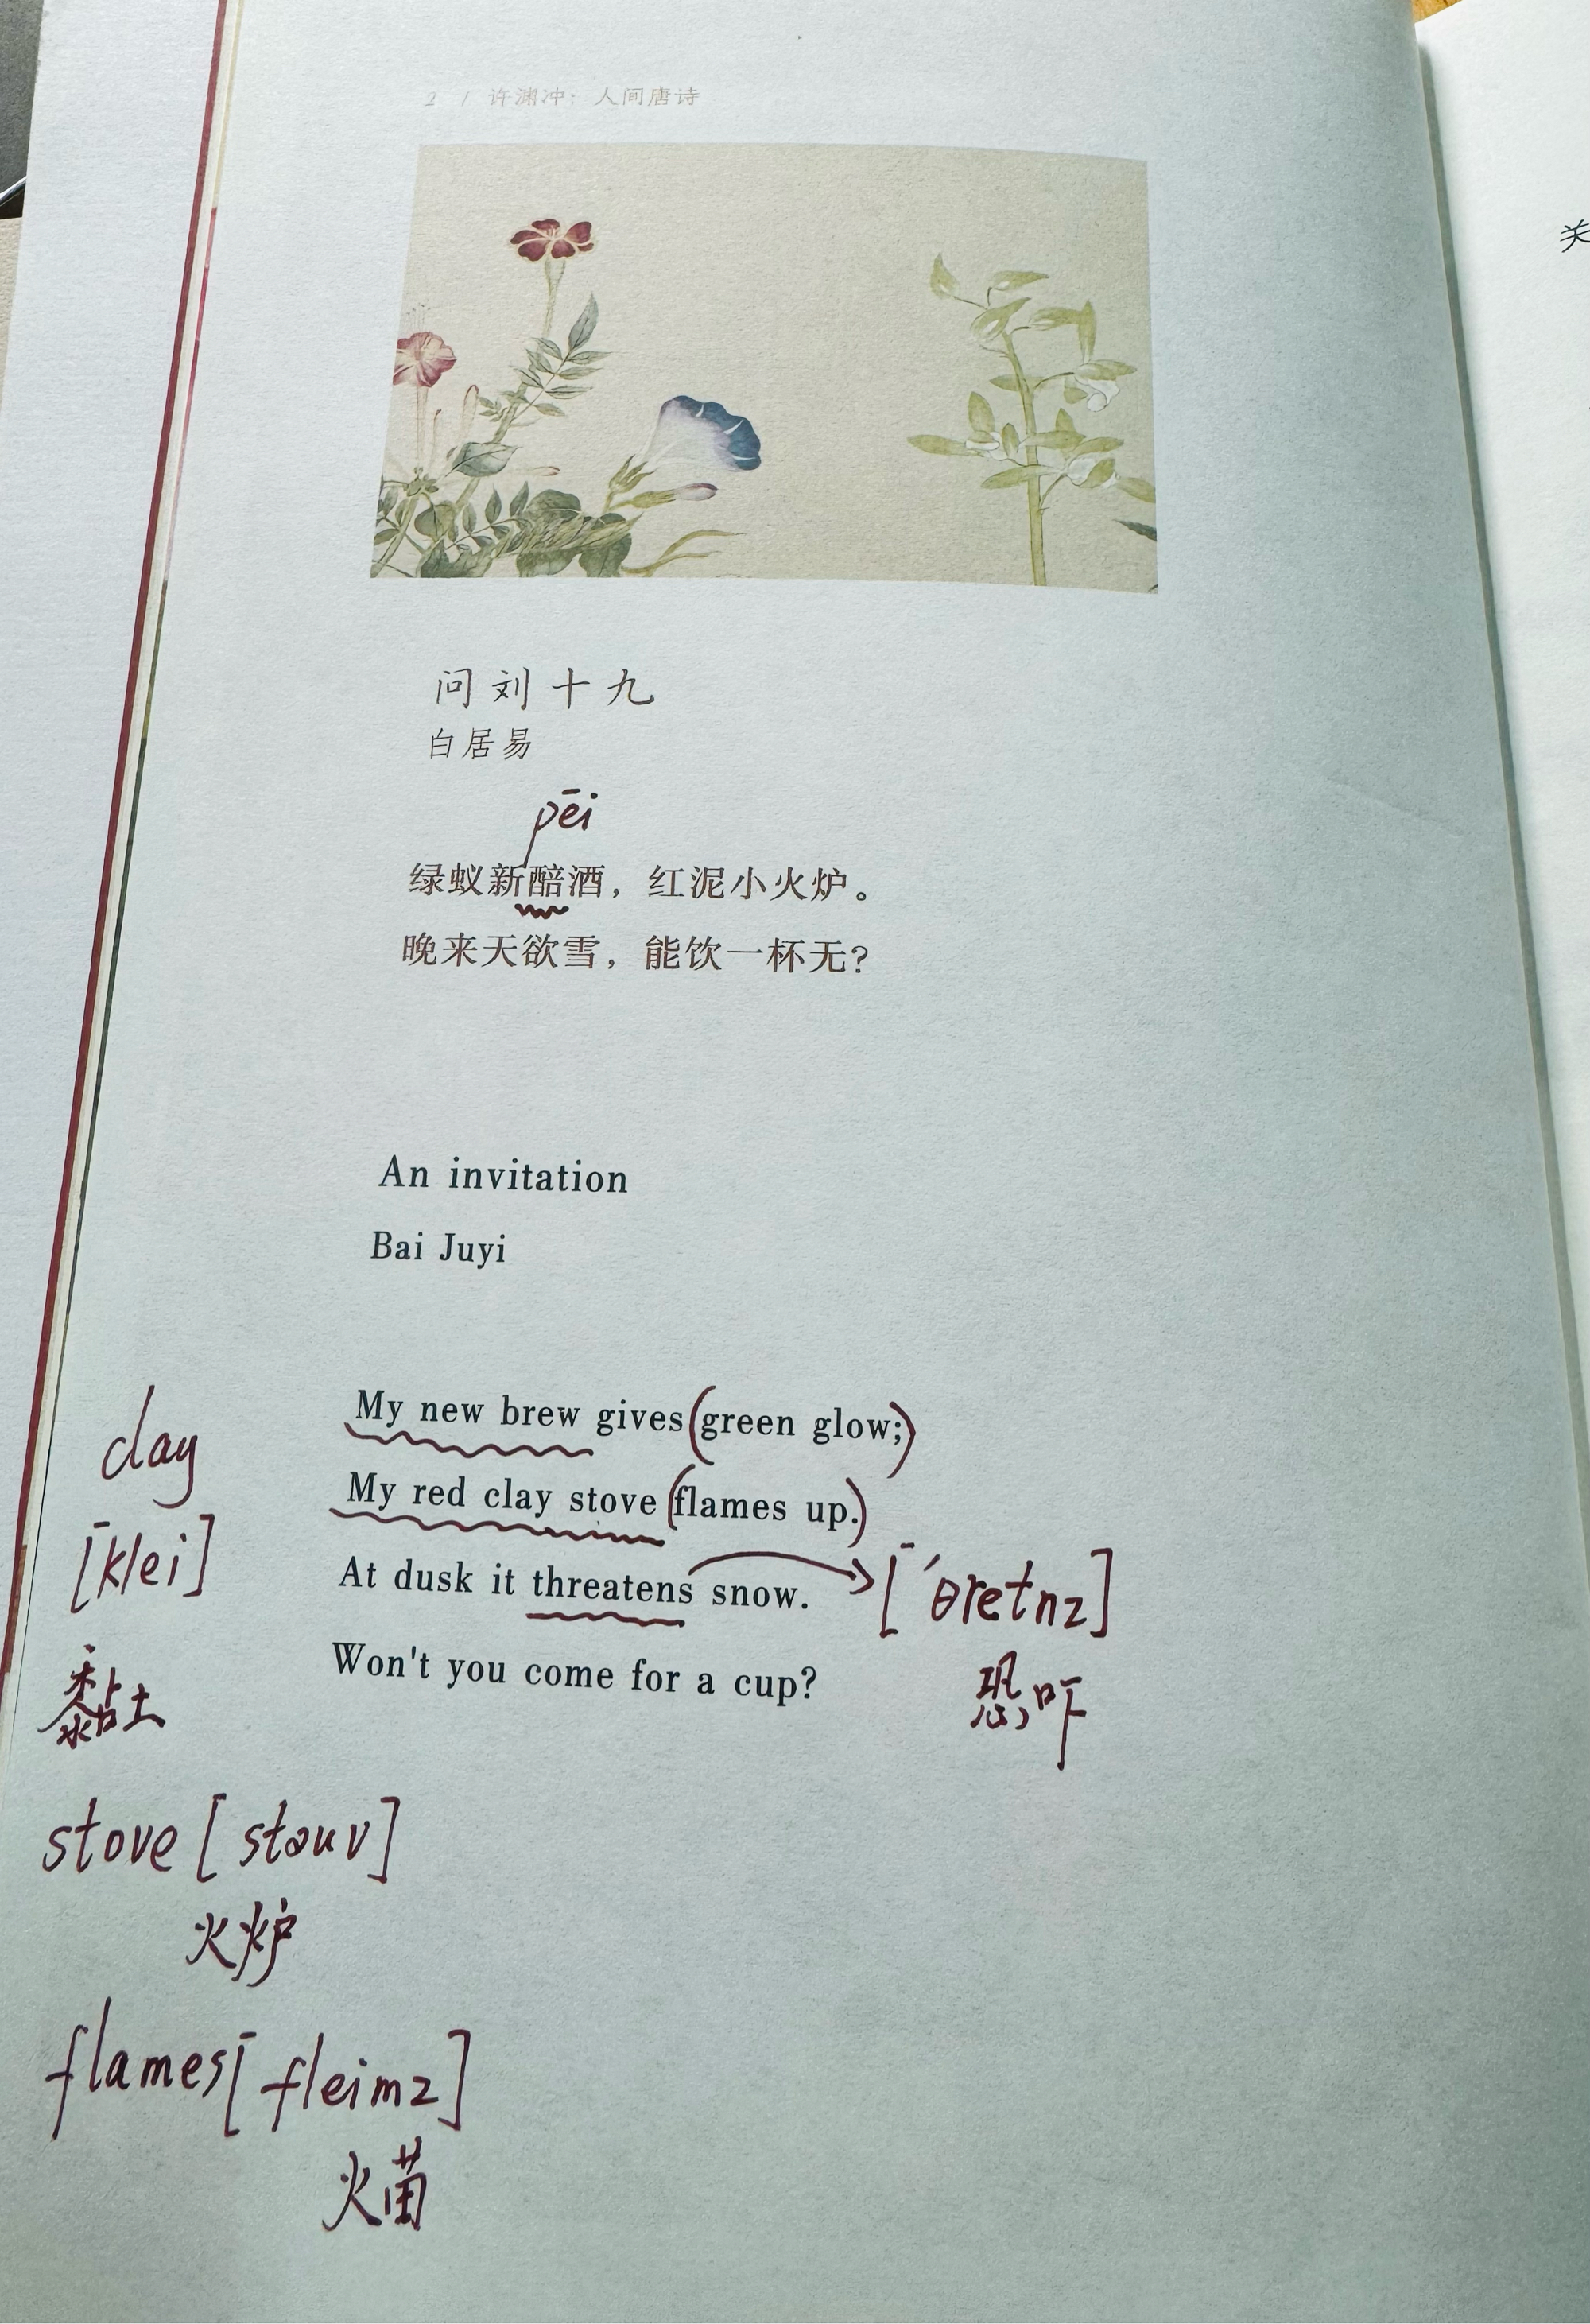 2 / 许渊冲：人间唐诗
关
问刘十九
白居易
pēi
绿蚁新醅酒，红泥小火炉。
晚来天欲雪，能饮一杯无？
An invitation
Bai Juyi
My new brew gives (green glow;)
My red clay stove (flames up.)
At dusk it threatens snow.
Won't you come for a cup?
clay
[klei]
黏土
['θretnz]
恐吓
stove [stəuv]
火炉
flames [fleimz]
火苗